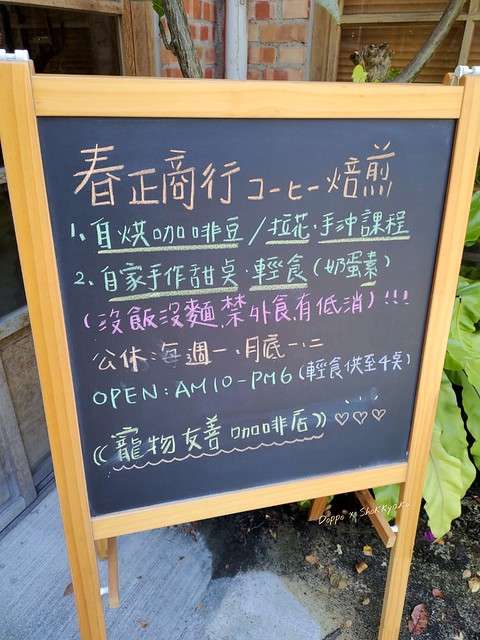 春正商行 コーヒー焙煎
1、自烘咖啡豆/拉花·手沖課程
2、自家手作甜桌·輕食(奶蛋素)
(沒飯沒麵,禁外食,有低消)!!!
公休:每週一、月底一、二
OPEN:AM10-PM6(輕食供至4桌)
((寵物友善咖啡店))♡♡♡